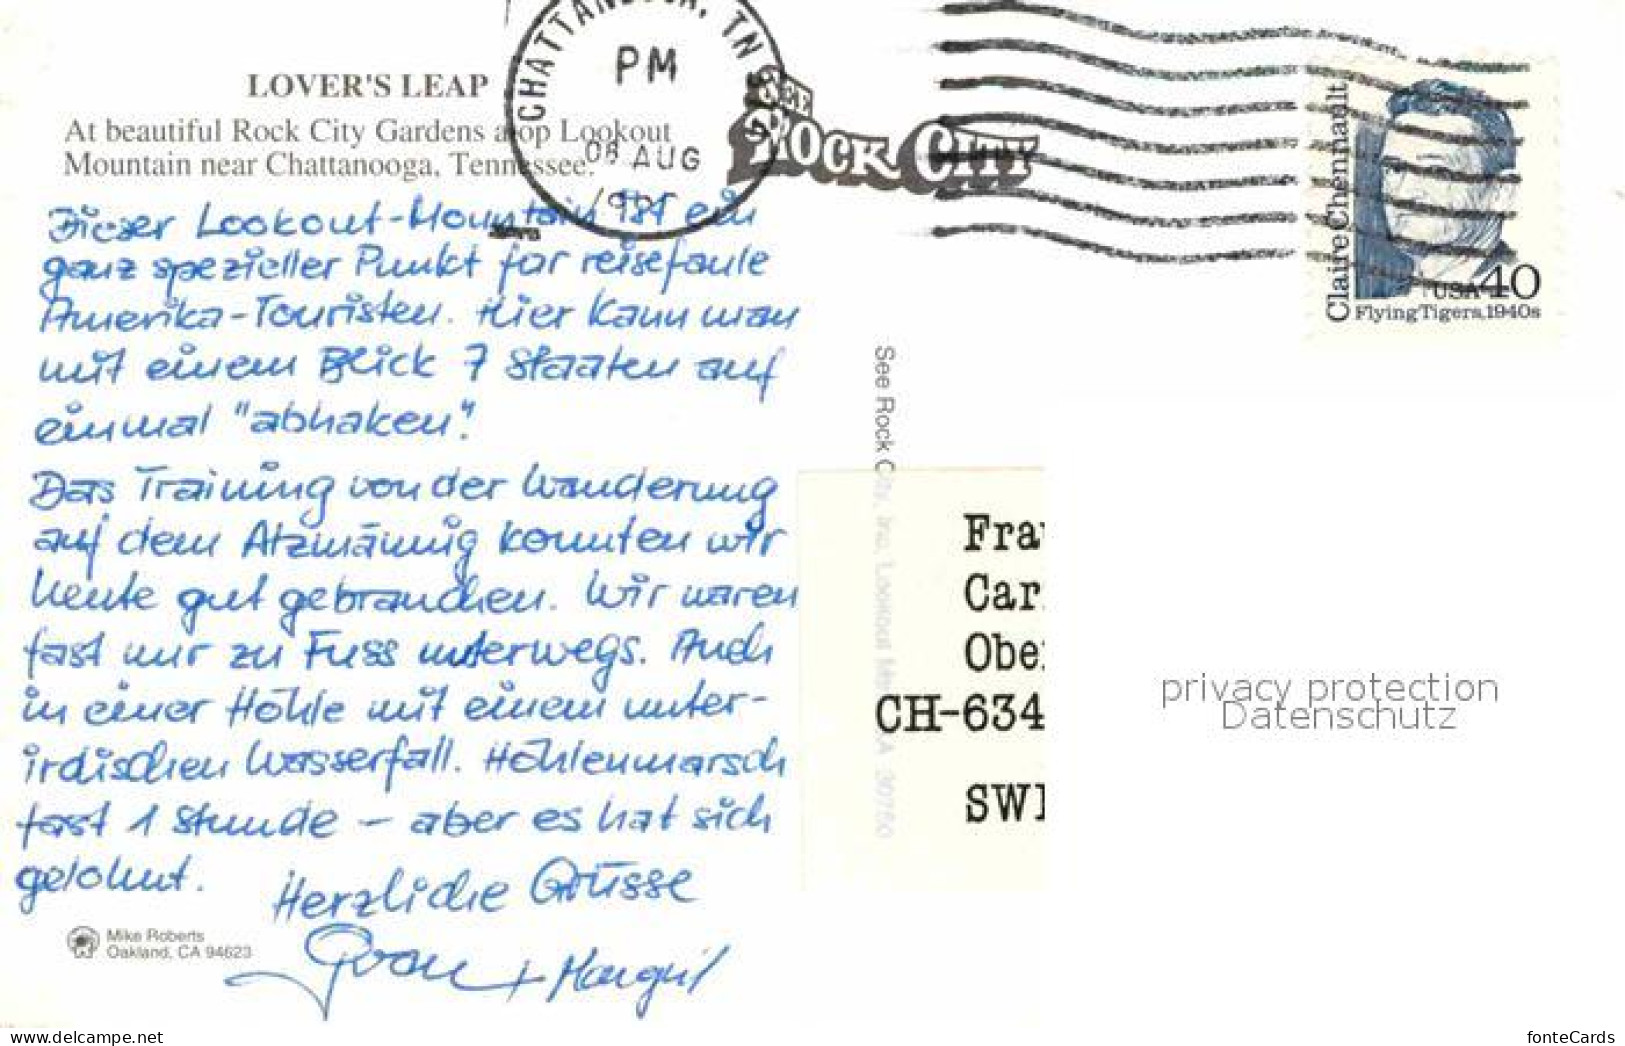 LOVER'S LEAP
At beautiful Rock City Gardens atop Lookout
Mountain near Chattanooga, Tennessee.
CHATTANOOGA, TN
PM
08 AUG
SEE
ROCK CITY
Claire Chennault
USA 40
Flying Tigers, 1940s
Dieser Lookout-Mountain ist ein
ganz spezieller Punkt for reisefaule
Amerika-Touristen. Hier kann man
mit einem Blick 7 Staaten auf
einmal "abhaken".
Das Training von der Wanderung
auf dem Atzmännig konnten wir
heute gut gebrauchen. Wir waren
fast nur zu Fuss unterwegs. Auch
in einer Höhle mit einem unter-
irdischen Wasserfall. Höhlenmarsch
fast 1 Stunde – aber es hat sich
gelohnt.
Herzliche Grüsse
Mike Roberts
Oakland, CA 94623
See Rock City, Inc. Lookout Mtn. GA 30750
Frau
Car
Obe
CH-634
SWI
privacy protection
Datenschutz
www.delcampe.net
fonteCards